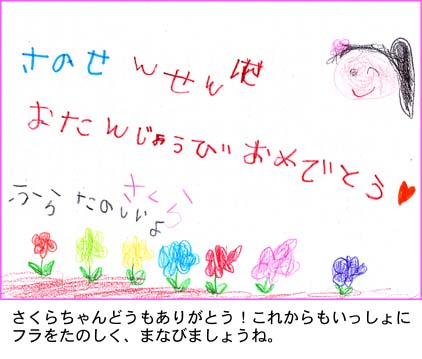 さのせ んせん
おたんじょうび おめでとう
さくら
たのしいよ
さくらちゃんどうもありがとう！これからもいっしょに
フラをたのしく、まなびましょうね。